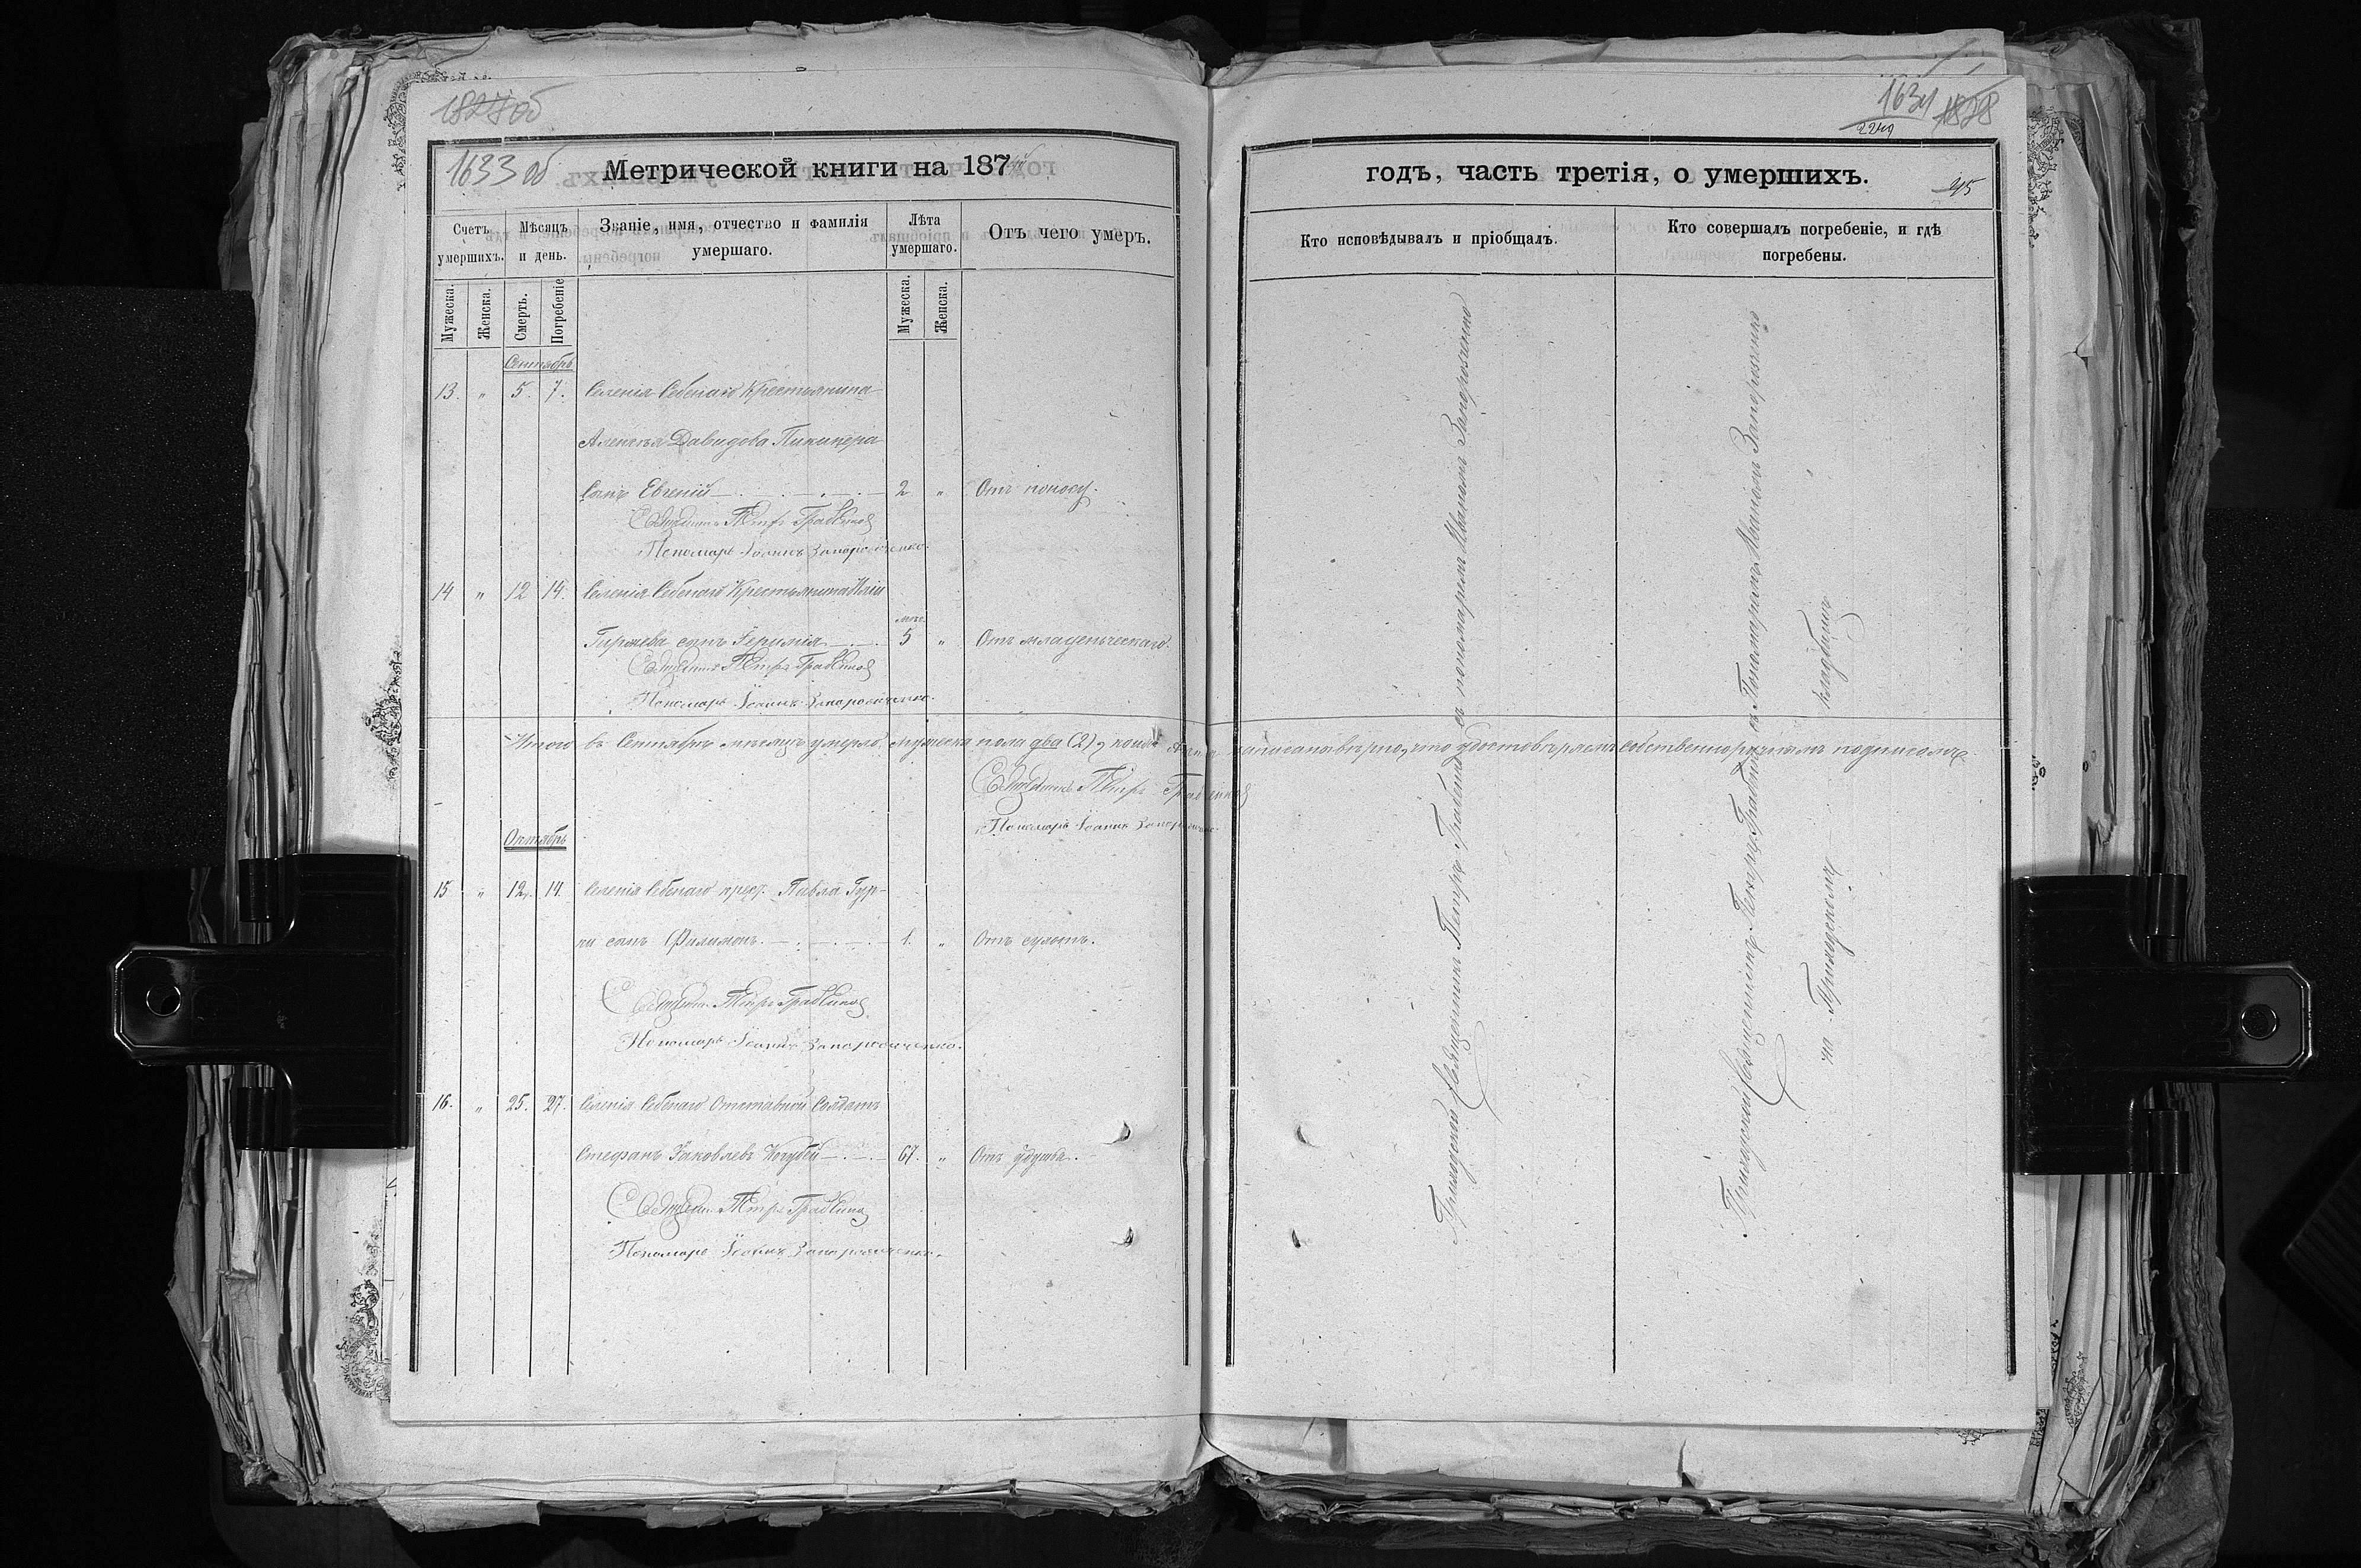 1827 об
1633 об
Метрической книги на 187
Счетъ умершихъ.
Мѣсяцъ и день.
Званіе, имя, отчество и фамилія умершаго.
Лѣта умершаго.
Отъ чего умеръ.
Мужеска.
Женска.
Смерть.
Погребеніе
Мужеска.
Женска.
Сентябрь
13. " 5. 7. Селенія Себенаго Крестьянина
Давидова
сынъ Евгеній 2 " Отъ поносу.
Священникъ Петръ
Пономарь Іоаннъ Запорожченко.
14 " 12 14. Селенія Себенаго Крестьянина Иліи
сынъ Іеримія мѣс. 5 " Отъ младенческаго.
Священникъ Петръ
Пономарь Іоаннъ Запорожченко.
Итого въ Сентябрѣ мѣсяцѣ умерло мужеска пола два (2), записана вѣрно, что удостовѣряемъ собственноручнымъ подписомъ.
Священникъ Петръ
Пономарь Іоаннъ Запорожченко
Октябрь
15 " 12. 14. Селенія Себенаго крест. Павла Гур-
ки сынъ Филимонъ. 1. " Отъ сухотъ.
Священникъ Петръ
Пономарь Іоаннъ Запорожченко.
16. " 25. 27. Селенія Себенаго Отставной Солдатъ
Стефанъ Яковлевъ 67. " Отъ удушья.
Священникъ Петръ
Пономарь Іоаннъ Запорожченко.
1634 1828
2249
годъ, часть третія, о умершихъ.
45
Кто исповѣдывалъ и пріобщалъ.
Кто совершалъ погребеніе, и гдѣ погребены.
Приходскій Священникъ Петръ съ пономаремъ Иваномъ Запорожченко
Приходскимъ Священникомъ Петромъ съ Пономаремъ Иваномъ Запорожченко
на Приходскомъ кладбищѣ